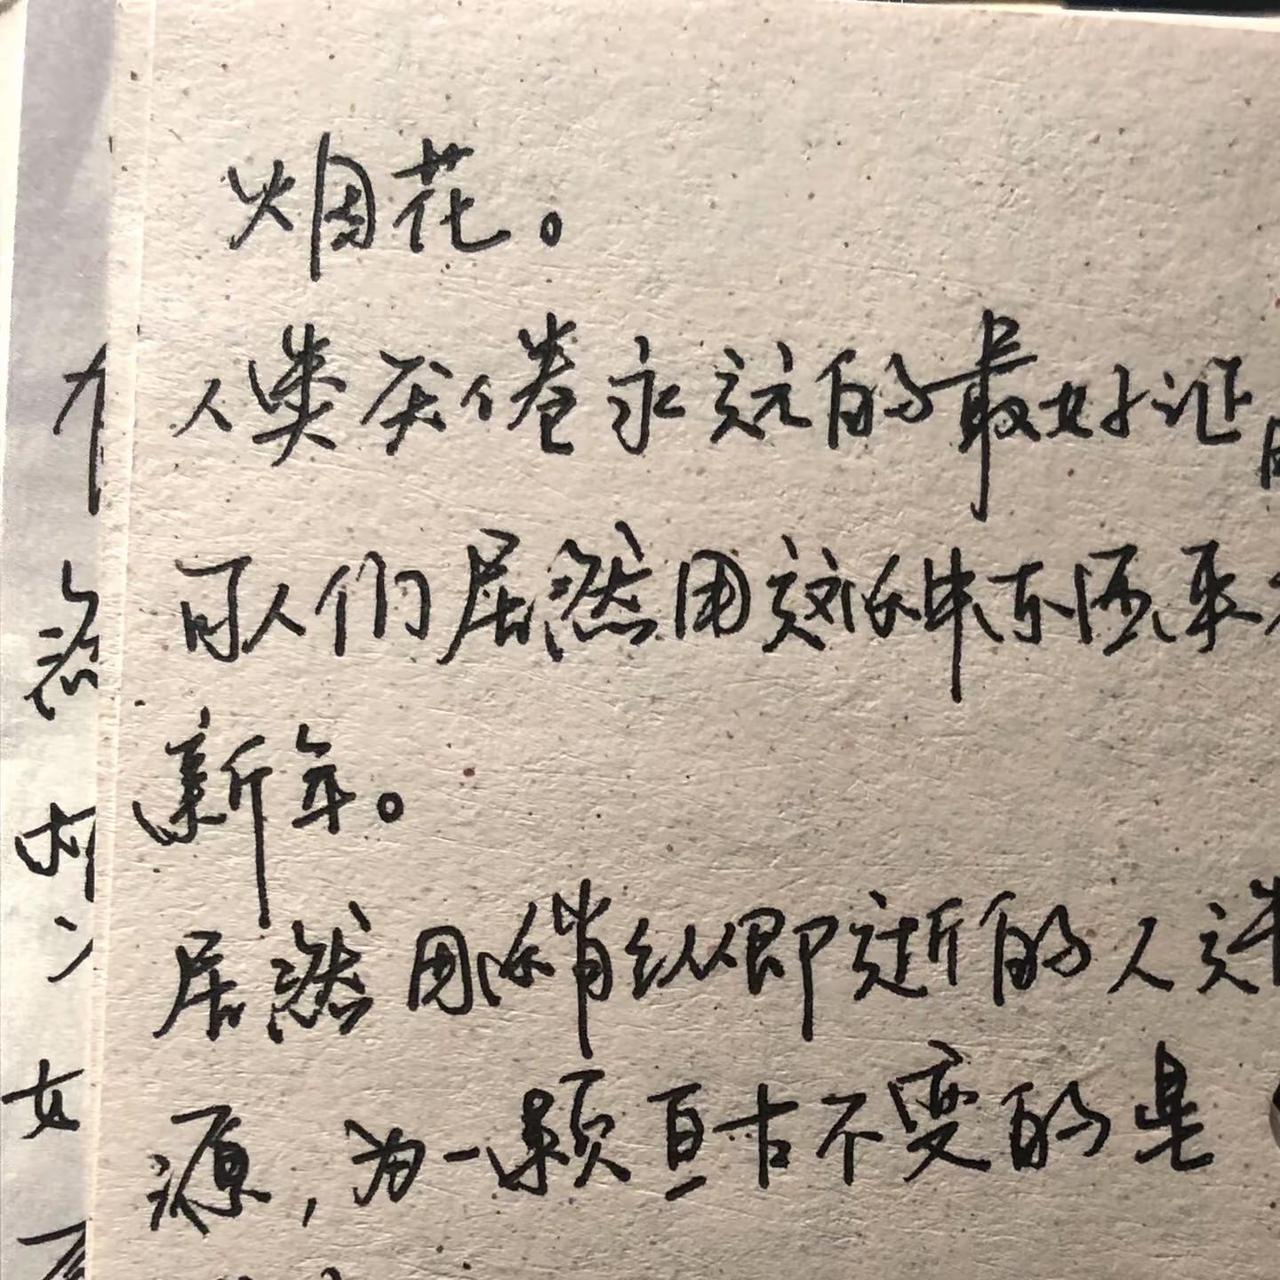 烟花。
人类厌倦永远的最好证
可人们居然用这种东西来
新年。
居然用稍纵即逝的人造
源，为一颗亘古不变的星